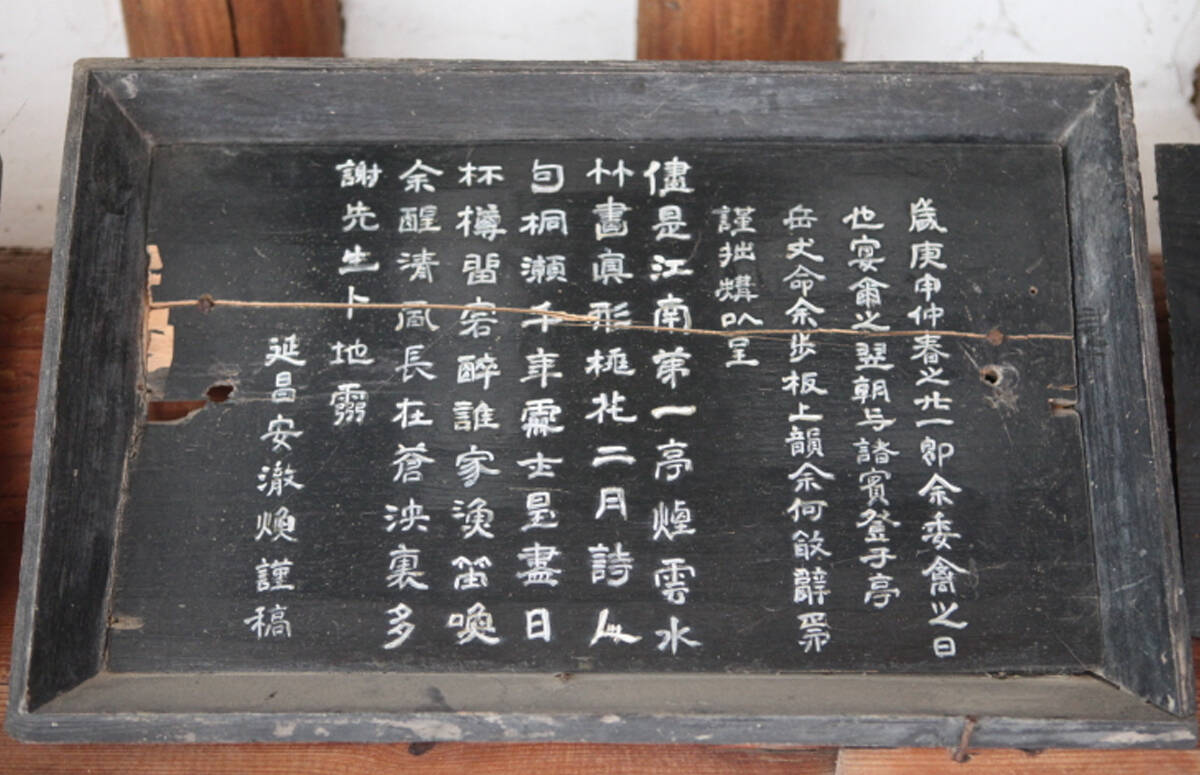 歲庚申仲春之廿一卽余委禽之日
也宴爾之翌朝与諸賓登子亭
岳丈命余步板上韻余何敢辭焉
謹拙構㕥呈
儘是江南第一亭煙雲水
竹畵眞形桃花二月詩人
句桐瀨千年處士星盡日
杯樽留客醉誰家漁笛喚
余醒淸風長在蒼泱裏多
謝先生卜地靈
延昌安澈煥謹稿